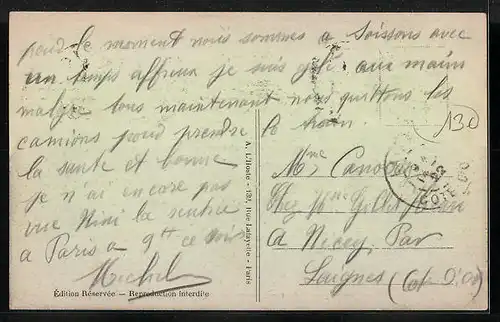 pour le moment nous sommes a Soissons avec
un temps affreux je suis gelé aux mains
malgré tous maintenant nous quittons les
camions pour prendre le train
la santé et bonne
je n'ai encore pas
vue Nini la rentrée
a Paris a 9h ce soir
Michel
Édition Réservée — Reproduction interdite
A. L'Hoste - 132, Rue Lafayette - Paris
130
Mme
Chez Mme
A Nicey, Par
Laignes (Cote D'Or)